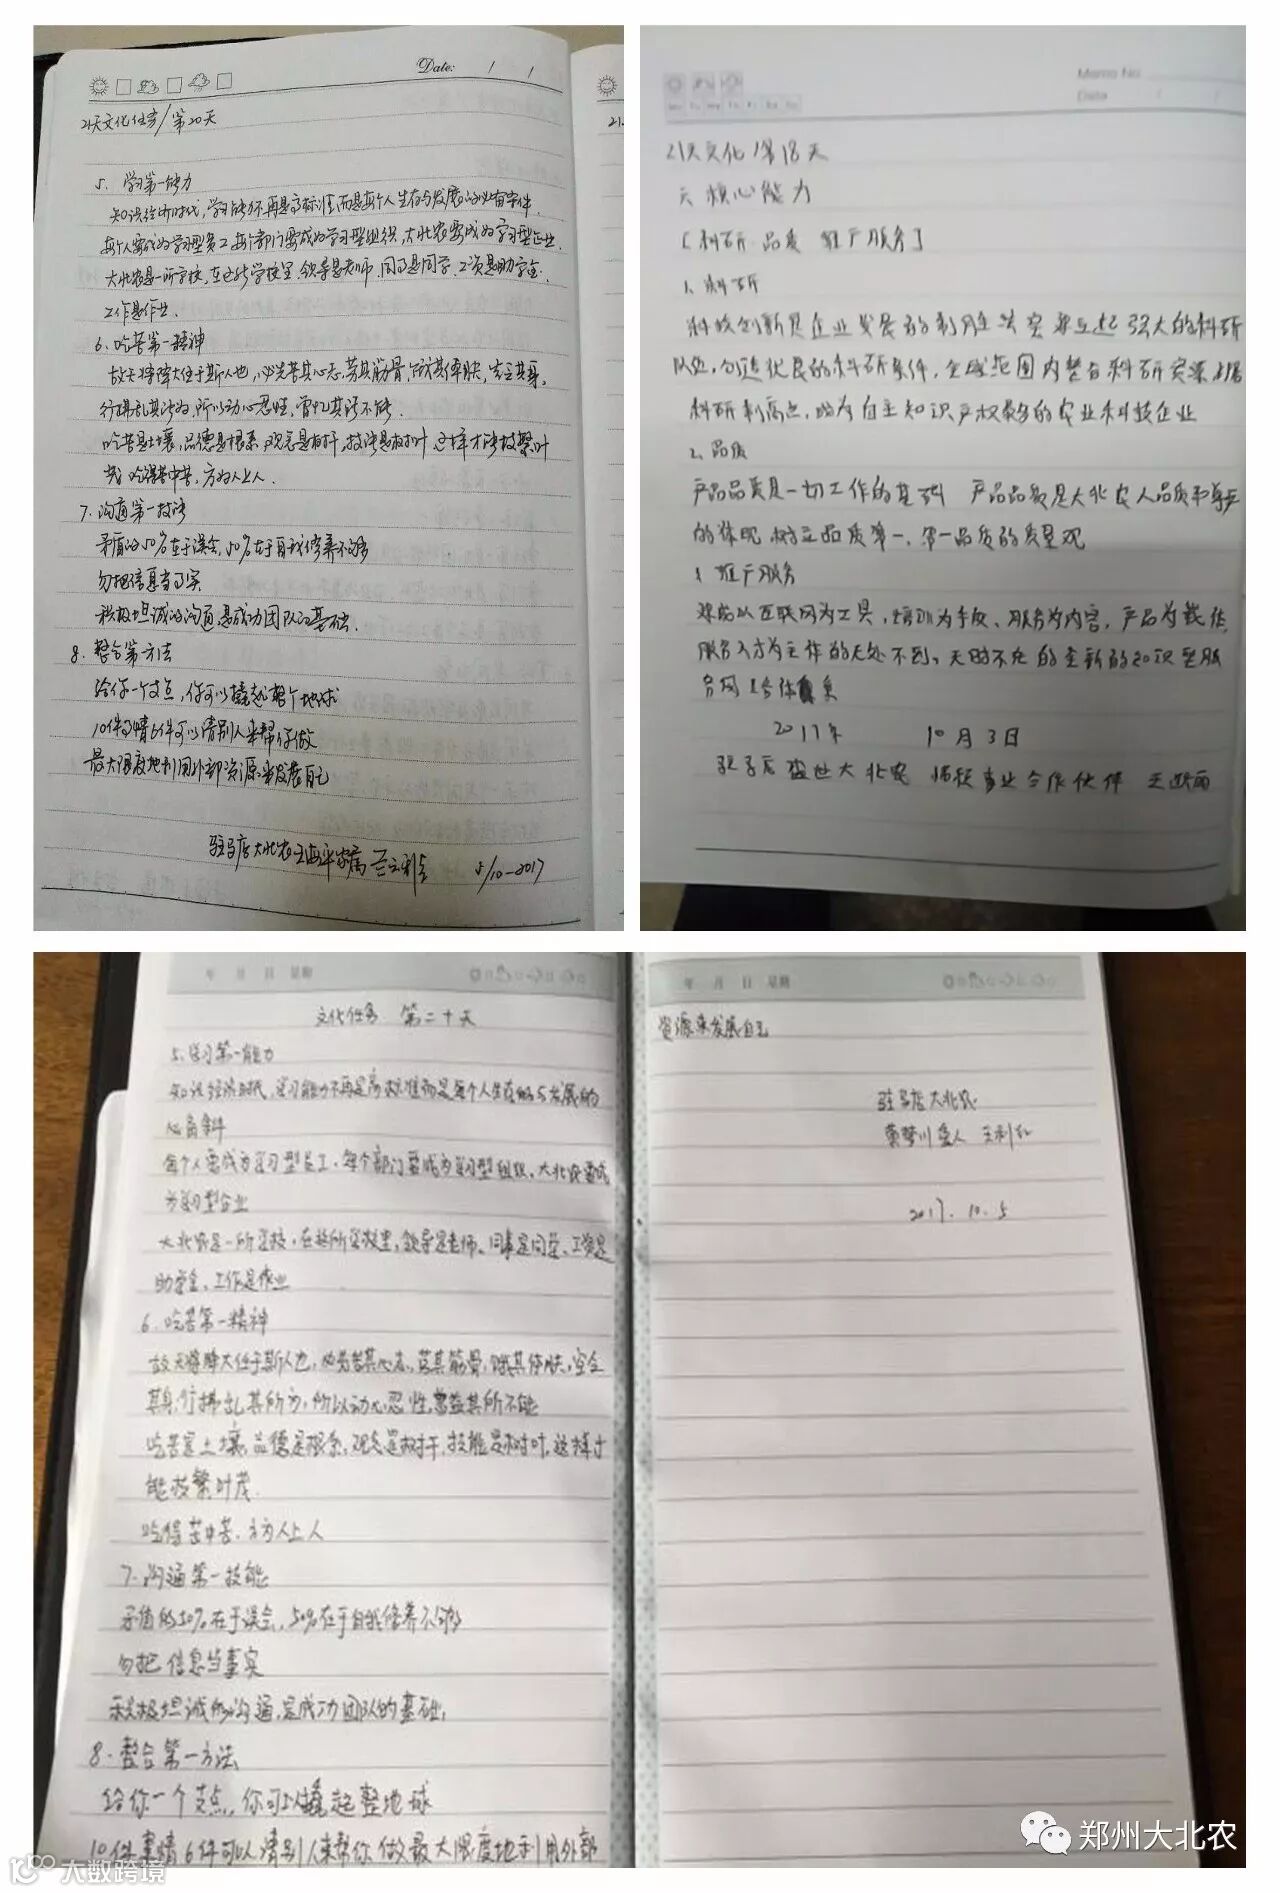 Date: / /
21天文化任务/第20天
5. 学习第一能力
知识经济时代,学习能力不再是高标准而是每个人生存与发展的必备条件.
每个人要成为学习型员工,每个部门要成为学习型组织,大北农要成为学习型企业.
大北农是一所学校,在这所学校里,领导是老师,同事是同学,工资是助学金.
工作是作业.
6. 吃苦第一精神
故天将降大任于斯人也,必先苦其心志,劳其筋骨,饿其体肤,空乏其身,
行拂乱其所为,所以动心忍性,曾益其所不能.
吃苦是土壤,品德是根系,观念是树干,技能是树叶,这样才能枝繁叶
茂 吃得苦中苦,方为人上人.
7. 沟通第一技能
矛盾的50%在于误会,50%在于自我修养不够
勿把信息当事实
积极坦诚的沟通,是成功团队的基础.
8. 整合第一方法
给你一个支点,你可以撬起整个地球
10件事情6件可以请别人来帮你做
最大限度地利用外部资源来发展自己
驻马店大北农王海平家属 5/10-2017
Memo No.
Date / /
Mo Tu We Th Fr Sa Su
21天文化/第18天
六 核心能力
[科研 品质 推广服务]
1、科研
科技创新是企业发展的制胜法宝 建立起强大的科研
队伍,创造优良的科研条件,全球范围内整合科研资源 占据
科研制高点,成为自主知识产权最多的农业科技企业
2、品质
产品品质是一切工作的基础 产品品质是大北农人品质和尊严
的体现 树立品质第一、第一品质的质量观
3 推广服务
建成以互联网为工具,培训为手段、服务为内容,产品为载体
服务人才为主体的无处不到、无时不在的全新的知识型服
务网络体系
2017年 10月3日
驻马店盛世大北农 事业合作伙伴
年 月 日 星期
文化任务 第二十天
5. 学习第一能力
知识经济时代,学习能力不再是高标准而是每个人生存的与发展的
必备条件
每个人要成为学习型员工,每个部门要成为学习型组织,大北农要成
为学习型企业
大北农是一所学校,在这所学校里,领导是老师、同事是同学、工资是
助学金、工作是作业
6. 吃苦第一精神
故天将降大任于斯人也,必先苦其心志,劳其筋骨,饿其体肤,空乏
其身,行拂乱其所为,所以动心忍性,曾益其所不能
吃苦是土壤,品德是根系,观念是树干,技能是树叶,这样才
能枝繁叶茂.
吃得苦中苦,方为人上人
7. 沟通第一技能
矛盾的50%在于误会,50%在于自我修养不够
勿把信息当事实
积极坦诚的沟通,是成功团队的基础,
8. 整合第一方法
给你一个支点,你可以撬起整地球
10件事情6件可以请别人来帮你做最大限度地利用外部
年 月 日 星期
资源来发展自己
驻马店大北农
王利红
2017.10.5
郑州大北农
大数跨境